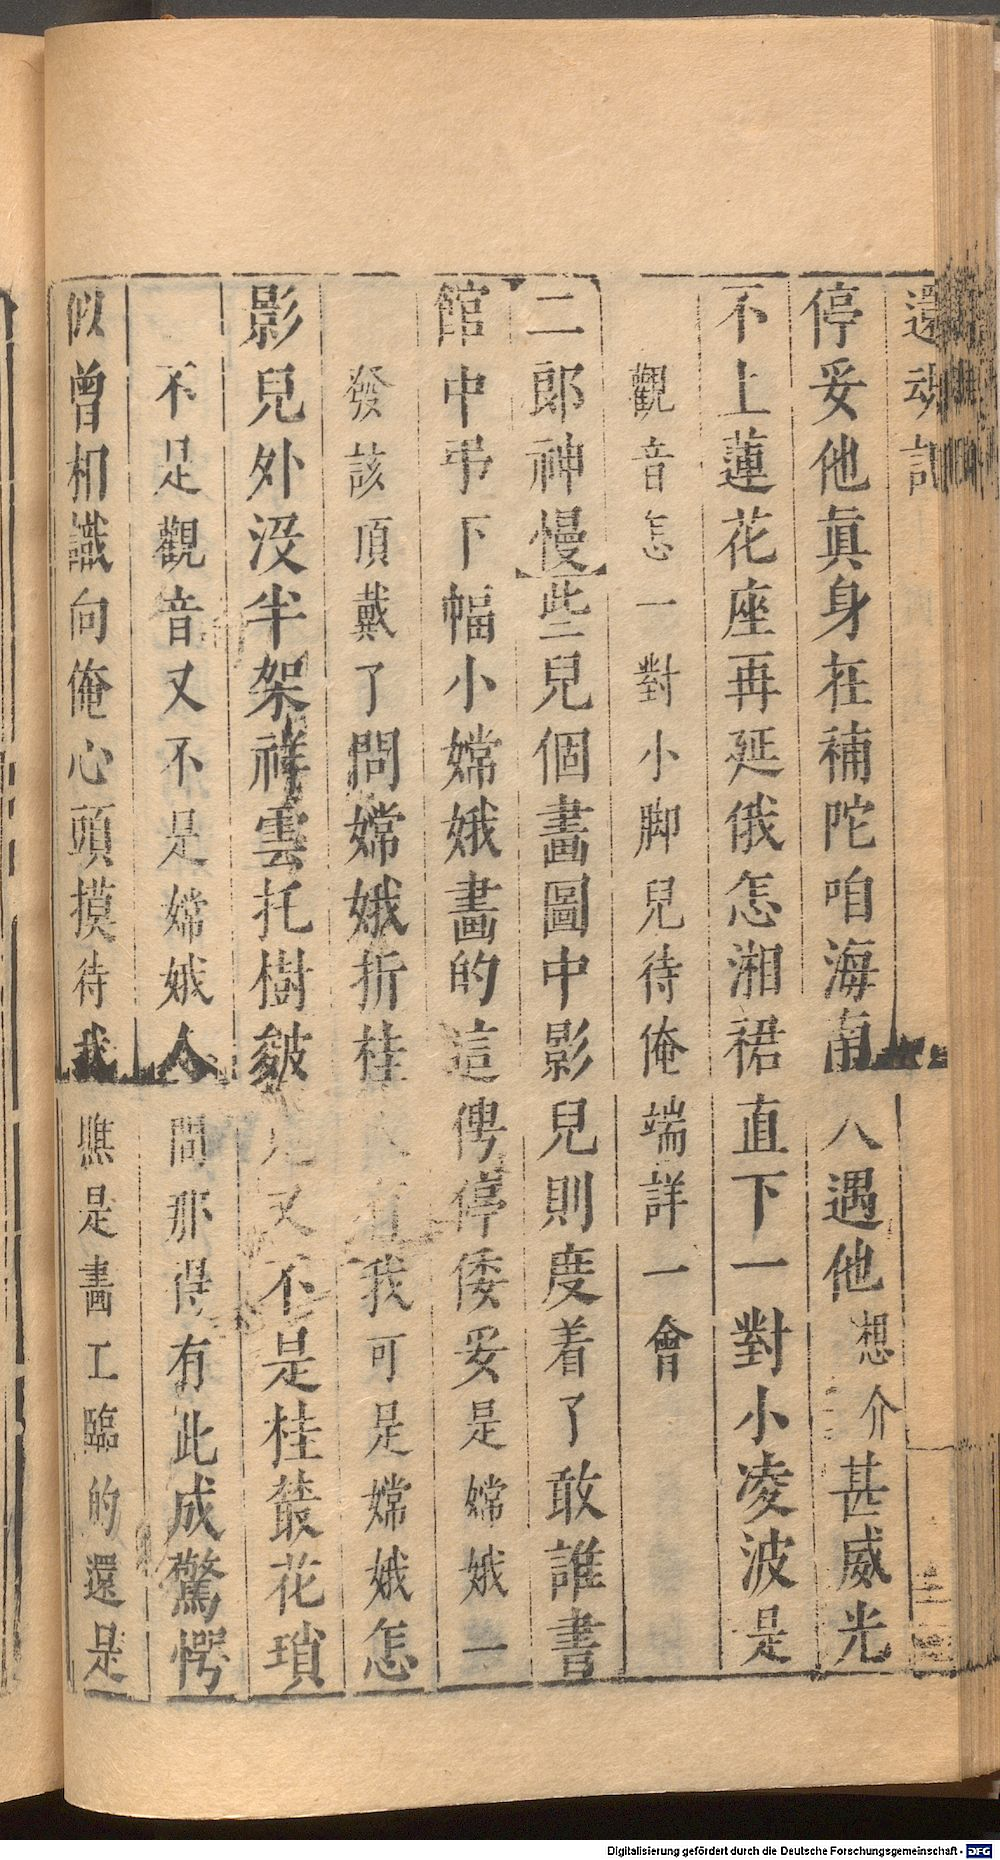 還魂記
停妥他眞身在補陀咱海南 八遇他想介甚威光
不上蓮花座再延俄怎湘裙直下一對小凌波是
觀音怎一對小脚兒待俺端詳一會
二郎神慢些兒個畵圖中影兒則度着了敢誰書
館中弔下幅小嫦娥畵的這俜停倭妥是嫦娥一
發該頂戴了問嫦娥折桂 有我可是嫦娥怎
影兒外沒半架祥雲托樹皴 又不是桂叢花瑣
不是觀音又不是嫦娥人間那得有此成驚愕
似曾相識向俺心頭摸待我瞧是畵工臨的還是
Digitalisierung gefördert durch die Deutsche Forschungsgemeinschaft - DFG